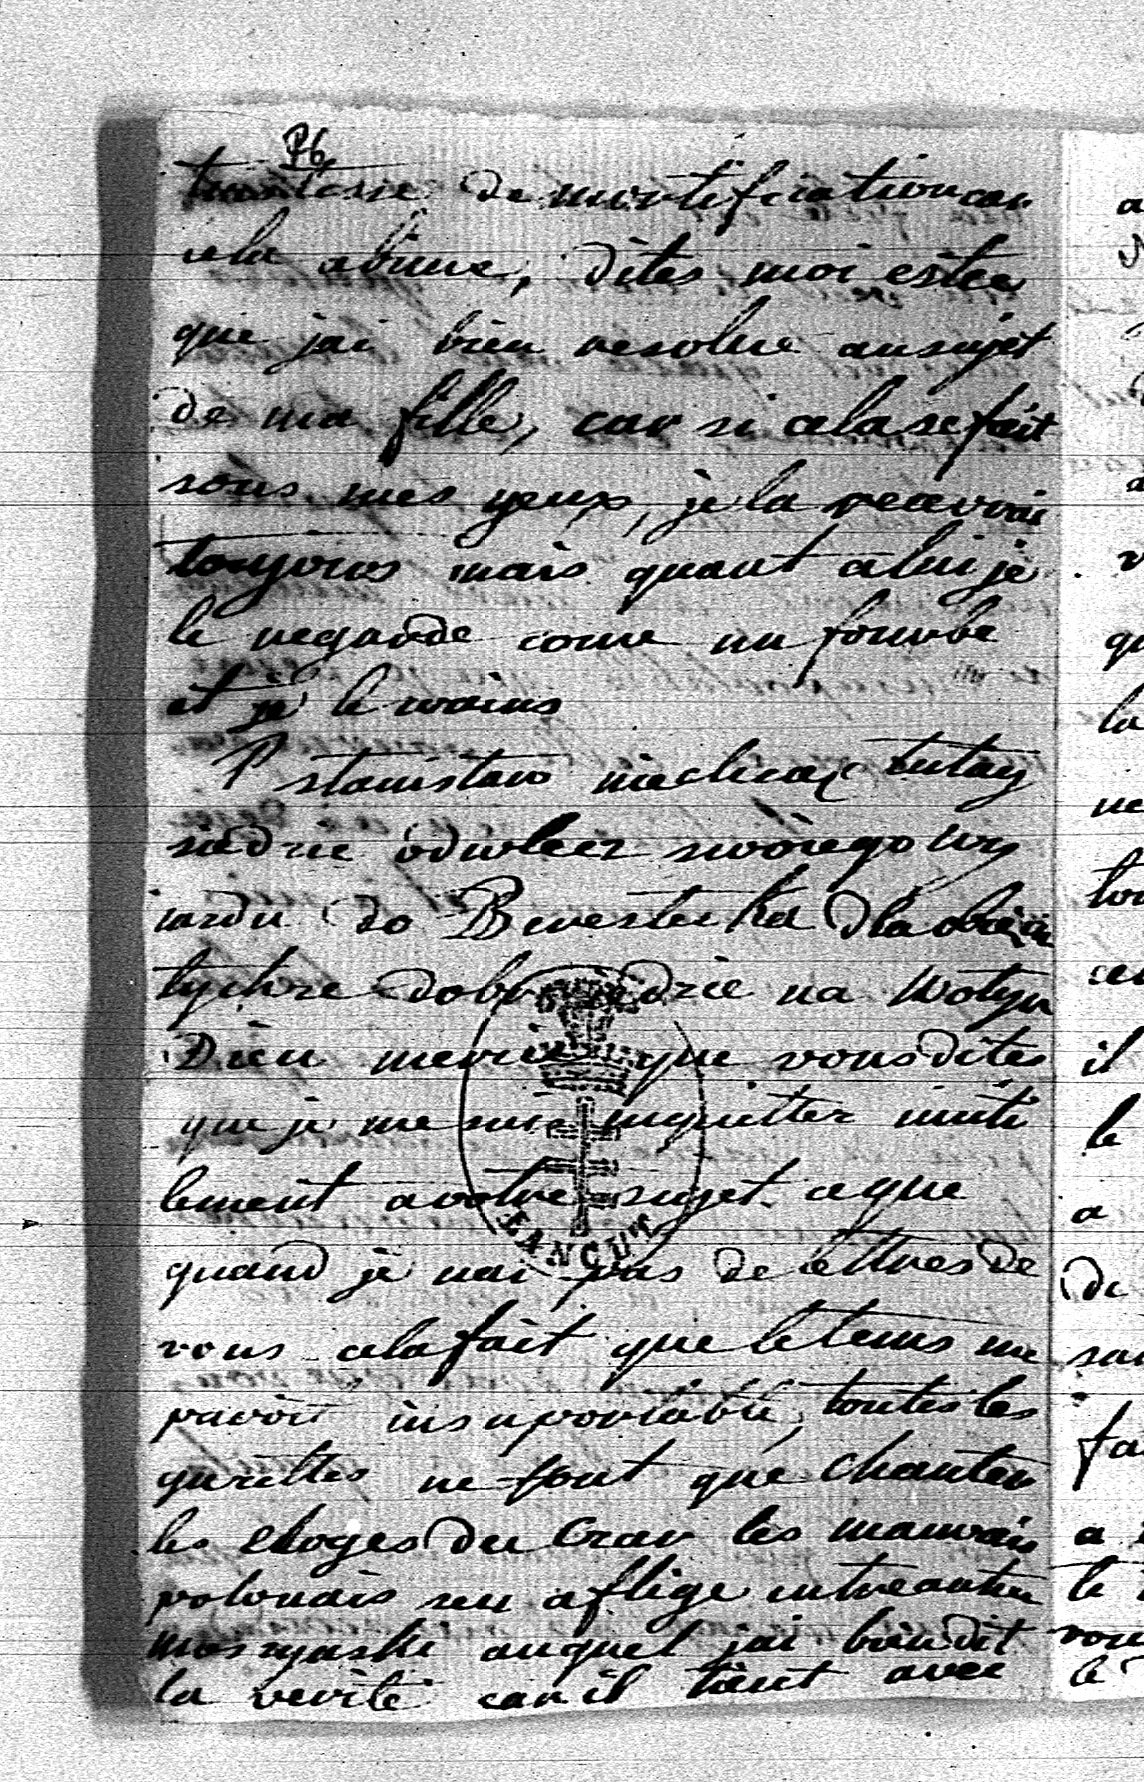 P6
de mortification car
cela abime, dites moi estce
que jai bien resolue ausujet
de ma fille, car si cela se fait
sous mes yeux, je la recevrai
toujours mais quant a lui je
le regarde come un fourbe
et je le crains
P stanistaw niechciaz tutay
siedzic odwlecz swoiego wy
iazdu do Beresteczka dla
dobr iedzie na Wolyn
Dieu merci que vous dites
que je me suis inquietter inuti
lement a votre sujet ceque
quand je nai pas de lettres de
vous cela fait que le tems me
paroit insuportable, toutes les
gazettes ne font que chanter
les eloges du Czar les mauvais
polonais sen aflige entreautre
auquel jai bien dit
la verite car il tient avec
ŁAŃCUT